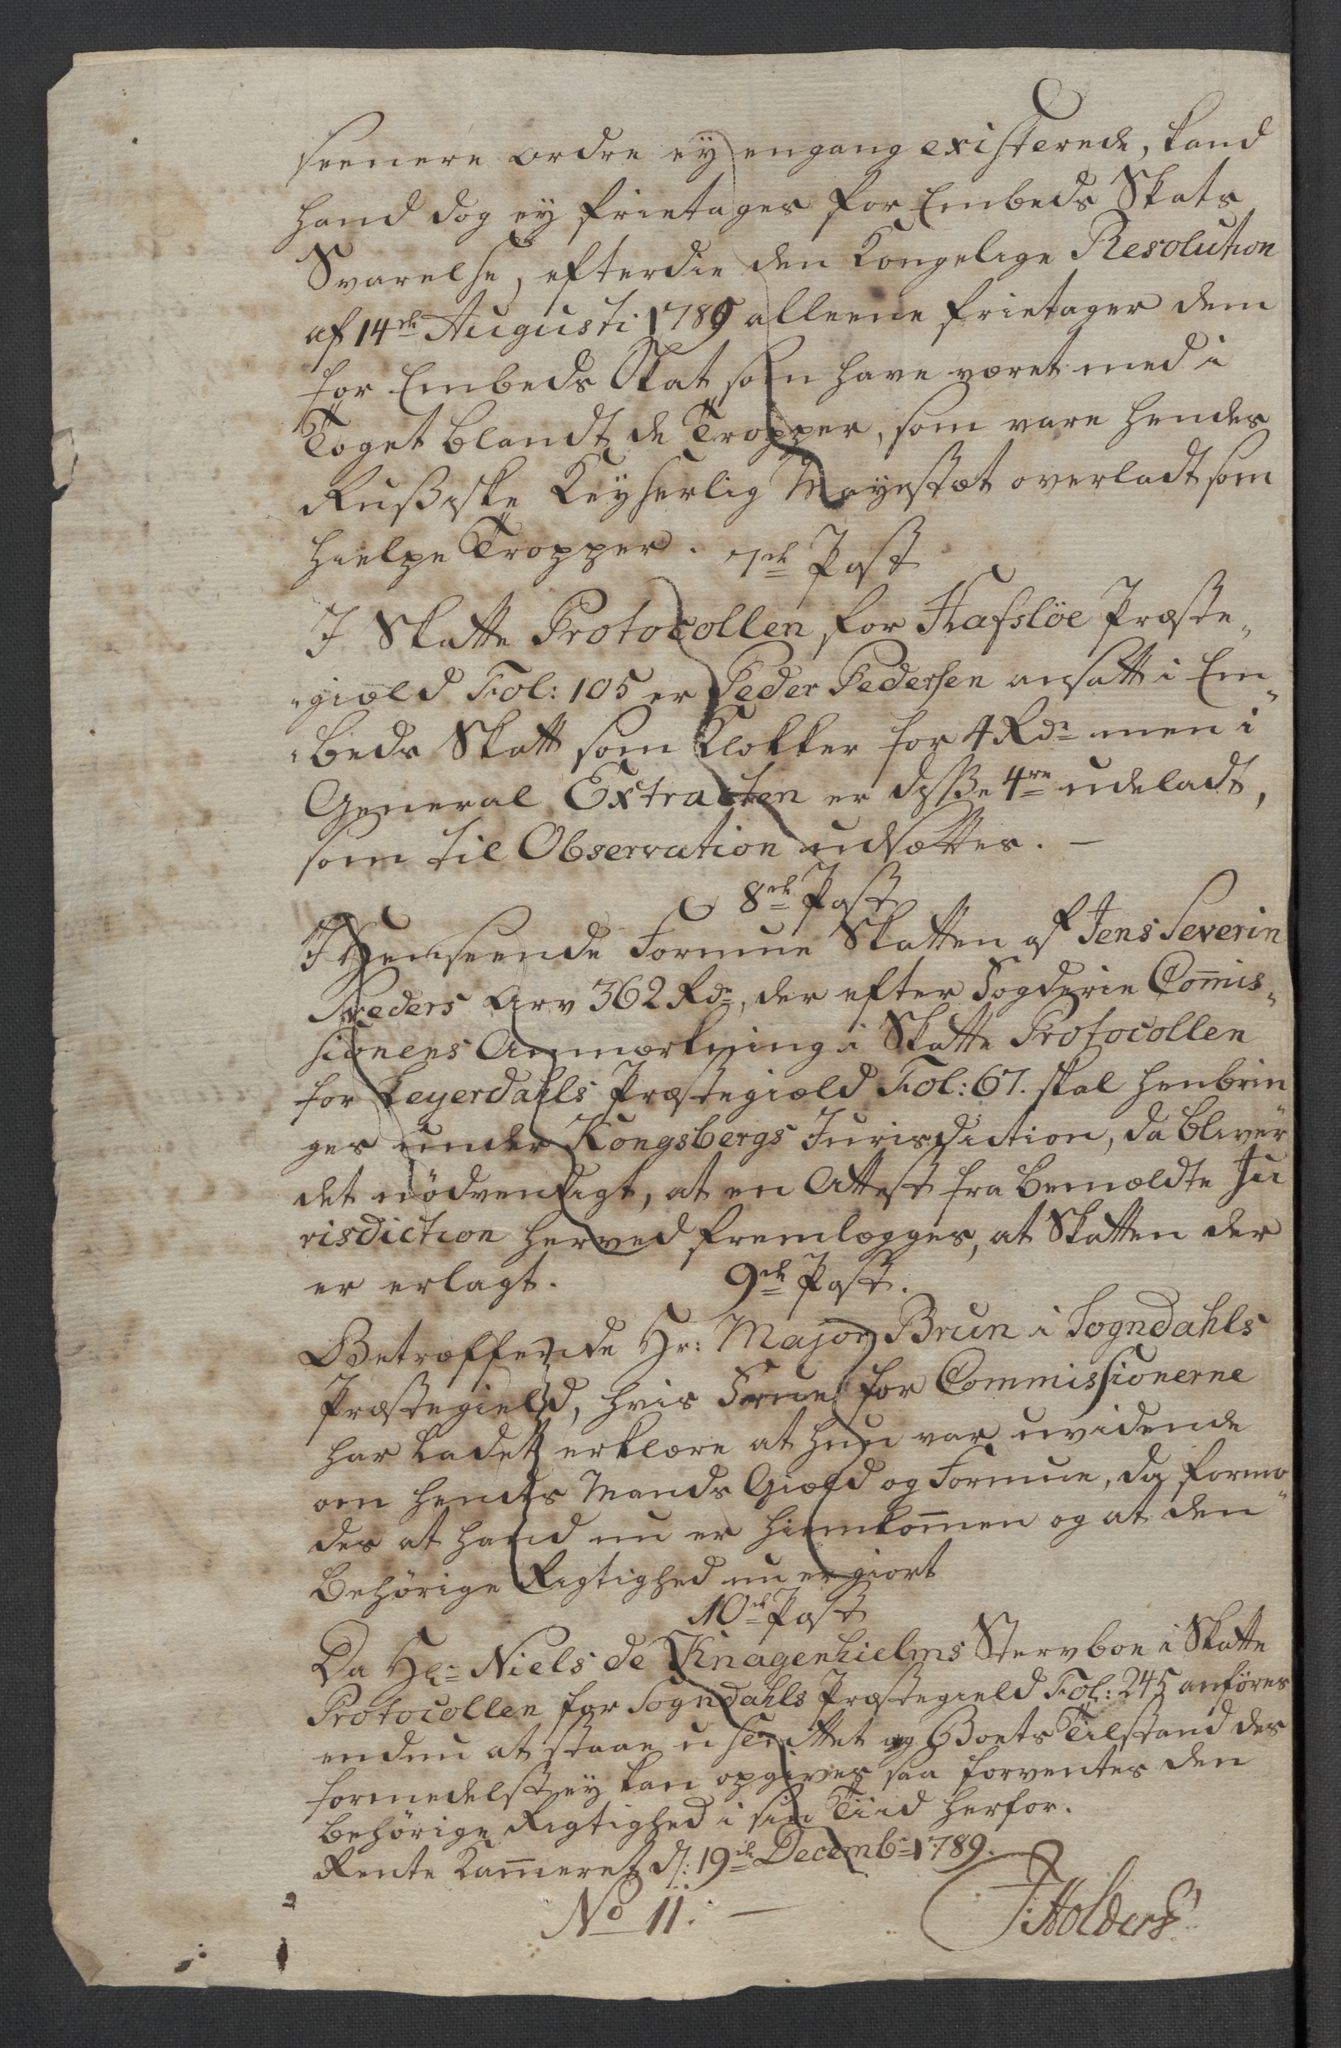 seenere ordre ey engang existerede, kand
hand dog ey frietages for Embeds Skats
Svarelse, efterdie den Kongelige Resolution
af 14de Augusti 1789 alleene frietager dem
for Embeds Skat som have været med i
Toget blandt de Tropper, som vare hendes
Russiske Keyserlig Mayestæt overladt som
hielpe Tropper. 7de Post
I Skatte Protocollen for Hafsløe Præste„
„giæld Fol: 105 er Peder Pedersen ansatt i Em„
„beds Skatt som Klokker for 4 Rdr men i
General Extracten er disse 4re udeladt,
som til Observation udsættes. —
8de Post
I Henseende Formue Skatten af Jens Severin
Arv 362 Rdr, der efter Fogderie Commis„
sionens Anmærkning i Skatte Protocollen
for Leyerdahls Præstegiæld Fol: 67. skal henbrin
ges under Kongsbergs Jurisdiction, da bliver
det nødvendigt, at en Attest fra bemældte Ju
risdiction herved fremlægges, at Skatten der
er erlagt. 9de Post.
Betræffende Hr: Major Brun i Sogndahls
Præstegield, hvis Frue for Commissionerne
har ladet erklære at hun var uvidende
om hendes Mands Giæld og Formue, da formo„
des at hand nu er hiemkommen og at den
behörige Rigtighed nu er giort
10de Post
Da Hr: Niels de Knagenhielms Stervboe i Skatte
Protocollen for Sogndahls Præstegield Fol: 245 anföres
endnu at staae u sluttet og Boets Tilstand des
formedelst ey kan opgives, saa forventes den
behörige Rigtighed i sin Tiid herfor.
Rente Kammeret d: 19de Decembr 1789.
No 11. — J: Holders